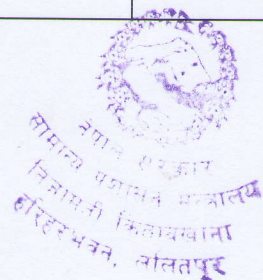 नेपाल सरकार
सामान्य प्रशासन मन्त्रालय
निजामती किताबखाना
हरिहरभवन, ललितपुर